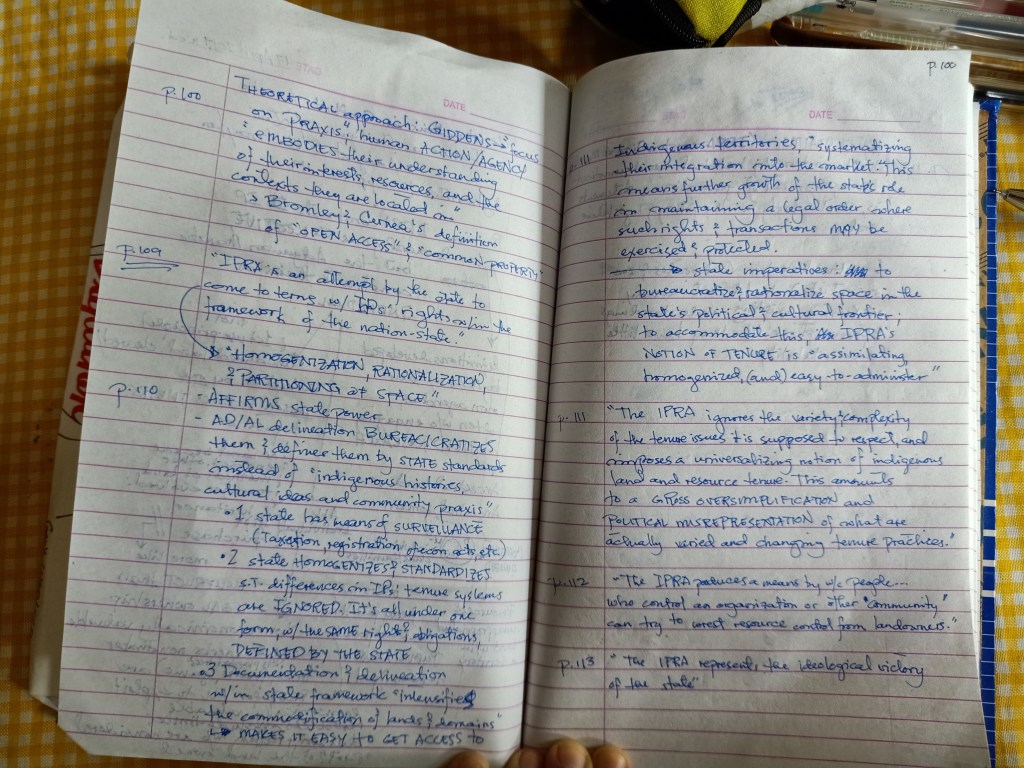 DATE
p.100
THEORETICAL approach: GIDDENS → focus
on PRAXIS; human ACTION/AGENCY
"EMBODIES their understanding
of their interests, resources, and the
contexts they are located in"
→ Bromley & Cernea's definition
of "OPEN ACCESS" & "common-property"
p.109
"IPRA is an attempt by the state to
come to terms w/ IPs' rights w/in the
framework of the nation-state."
→ "HOMOGENIZATION, RATIONALIZATION,
& PARTITIONING of SPACE"
p.110
- AFFIRMS state power
- AD/AL delineation BUREAUCRATIZES
them & defines them by STATE standards
instead of "indigenous histories,
cultural ideas and community praxis"
•1 state has means of SURVEILLANCE
(Taxation, registration of econ acts, etc)
•2 state HOMOGENIZES & STANDARDIZES
s.t. differences in IPs' tenure systems
are IGNORED. It's all under one
form, w/ the SAME rights & obligations,
DEFINED BY THE STATE
.3 Documentation & delineation
w/in state framework "intensifies
the commodification of lands & domains"
↳ MAKES IT EASY TO GET ACCESS TO
p.100
DATE
p.111
Indigenous territories, "systematizing
their integration into the market." This
means further growth of the state's role
in maintaining a legal order where
such rights & transactions may be
exercised & protected.
→ state imperatives: to
bureaucratize & rationalize space in the
state's political & cultural frontier;
to accommodate this, IPRA's
NOTION OF TENURE is "assimilating,
homogenized, (and) easy-to-administer"
p.111
"The IPRA ignores the variety & complexity
of the tenure issues it is supposed to respect, and
imposes a universalizing notion of indigenous
land and resource tenure. This amounts
to a GROSS OVERSIMPLIFICATION and
POLITICAL MISREPRESENTATION of what are
actually varied and changing tenure practices."
p.112
"The IPRA produces a means by w/c people...
who control an organization or other "community"
can try to wrest resource control from landowners."
p.113
"The IPRA represents the ideological victory
of the state"